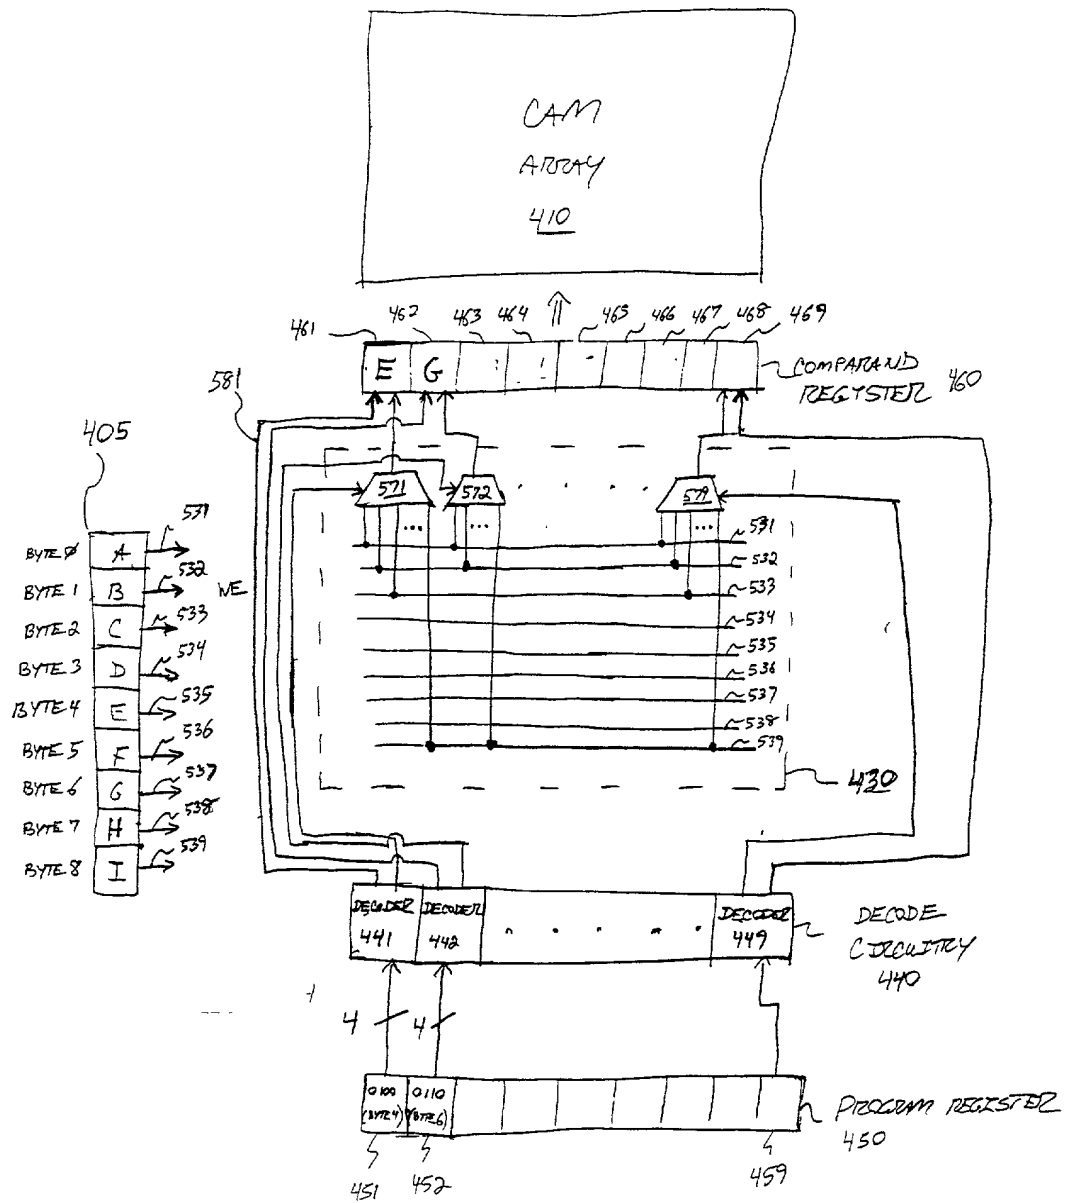 CAM
ARRAY
410
461
462
463
464
465
466
467
468
469
E
G
COMPARAND
REGISTER 460
581
405
531
BYTE 0 A
532
BYTE 1 B
WE
533
BYTE 2 C
534
BYTE 3 D
535
BYTE 4 E
536
BYTE 5 F
537
BYTE 6 G
538
BYTE 7 H
539
BYTE 8 I
571
572
579
...
...
...
531
532
533
534
535
536
537
538
539
430
DECODER
441
DECODER
442
DECODER
449
DECODE
CIRCUITRY
440
4
4
0100
(BYTE 4)
0110
(BYTE 6)
PROGRAM REGISTER
450
451
452
459